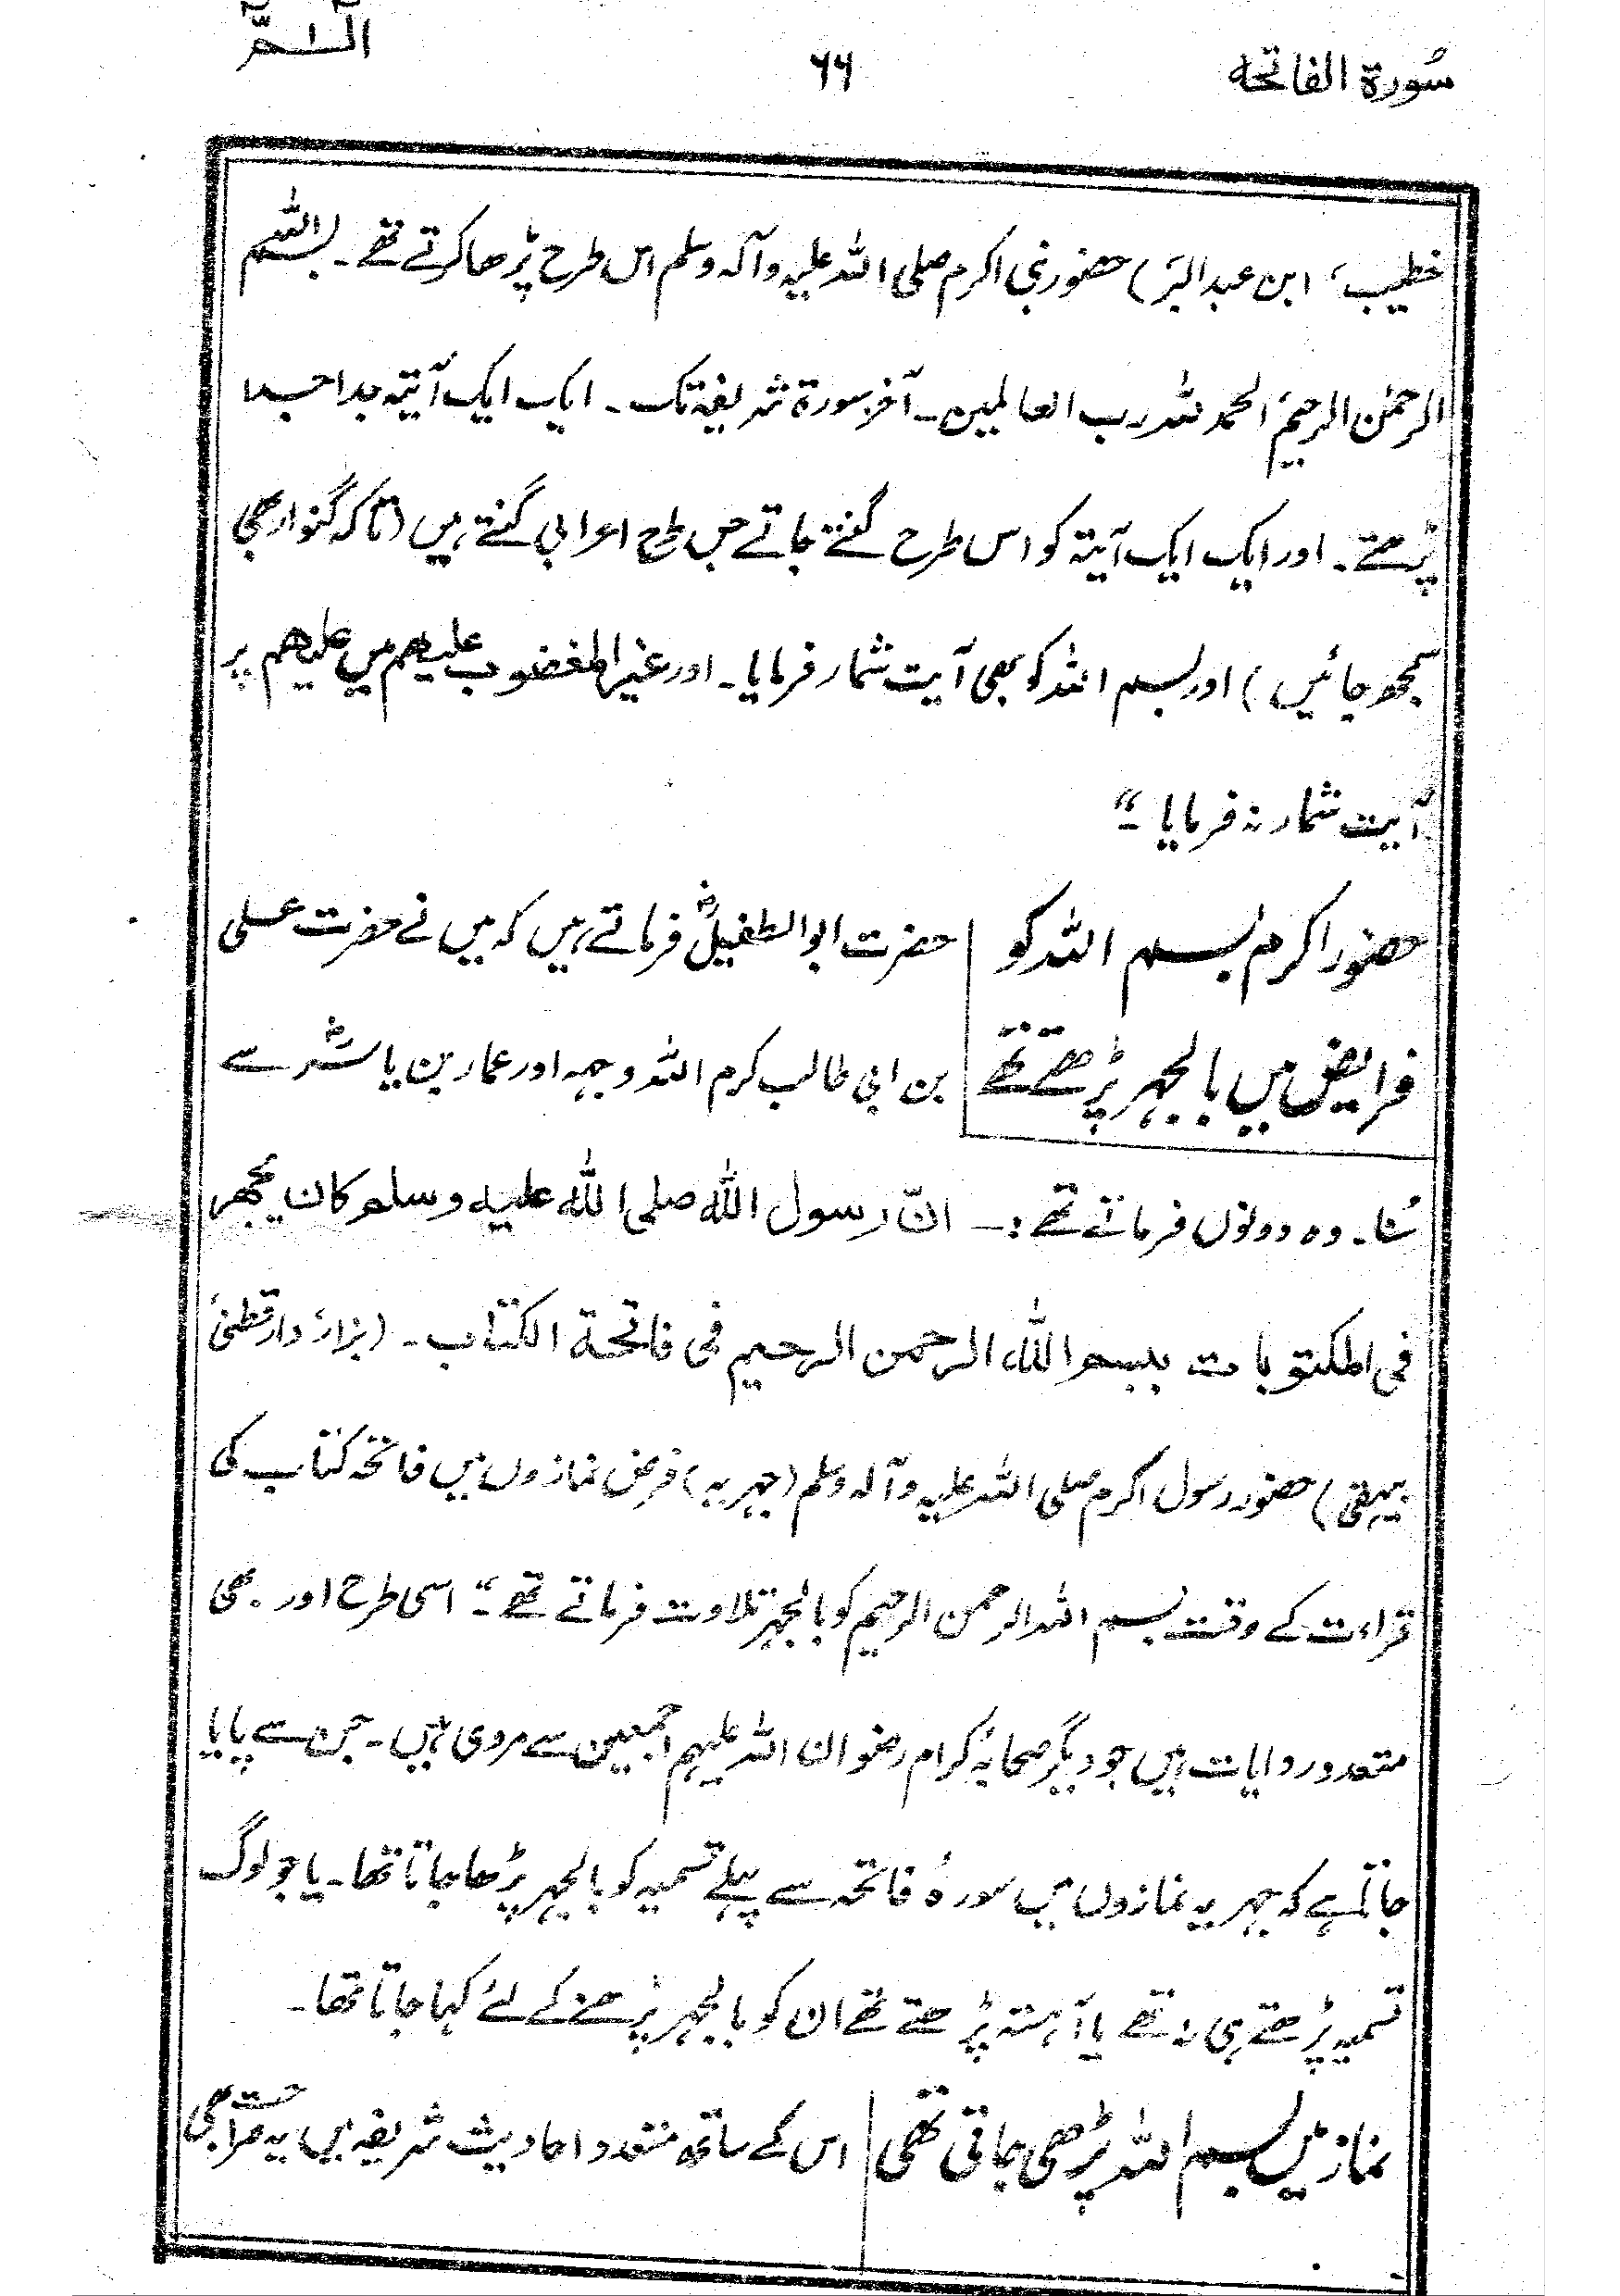 سُورۃ الفاتحہ ۶۶ الٓـمّٓ
خطیب، ابن عبدالبَر) حضور نبی اکرم صلی اللہ علیہ وآلہ وسلم اس طرح پڑھا کرتے تھے۔ بسم اللہ
الرحمٰن الرحیم، الحمد للہ رب العالمین۔ آخر سورۃ شریفہ تک۔ ایک ایک آیتہ جدا جدا
پڑھتے۔ اور ایک ایک آیتہ کو اس طرح گنتے جاتے جس طرح اعرابی گنتے ہیں (تاکہ گنوار بھی
سمجھ جائیں) اور بسم اللہ کو بھی آیت شمار فرمایا۔ اور غیر المغضوب علیھم میں علیھم پر
آیت شمار نہ فرمایا۔“
حضور اکرم بسم اللہ کو
فرایض میں بالجہر پڑھتے تھے
حضرت ابوالطفیلؓ فرماتے ہیں کہ میں نے حضرت علی
بن ابی طالب کرم اللہ وجہہ اور عمار بن یاسرؓ سے
سُنا۔ وہ دونوں فرماتے تھے :۔ انّ رسول اللہ صلی اللہ علیہ وسلم کان یجھر
فی المکتوبات ببسم اللہ الرحمن الرحیم فی فاتحۃ الکتاب۔ (بزار، دارقطنی،
بیہقی) حضور رسول اکرم صلی اللہ علیہ وآلہ وسلم (جہریہ) فرض نمازوں میں فاتحہ کتاب کی
قراءت کے وقت بسم اللہ الرحمن الرحیم کو بالجہر تلاوت فرماتے تھے۔“ اسی طرح اور بھی
متعدد روایات ہیں جو دیگر صحابۂ کرام رضوان اللہ علیہم اجمعین سے مروی ہیں۔ جن سے پایا
جاتا ہے کہ جہریہ نمازوں میں سورۂ فاتحہ سے پہلے تسمیہ کو بالجہر پڑھا جاتا تھا۔ یا جو لوگ
تسمیہ پڑھتے ہی نہ تھے یا آہستہ پڑھتے تھے ان کو بالجہر پڑھنے کے لئے کہا جاتا تھا۔
نماز میں بسم اللہ پڑھی جاتی تھی
اس کے ساتھ متعدد احادیث شریفہ میں یہ صراحت بھی